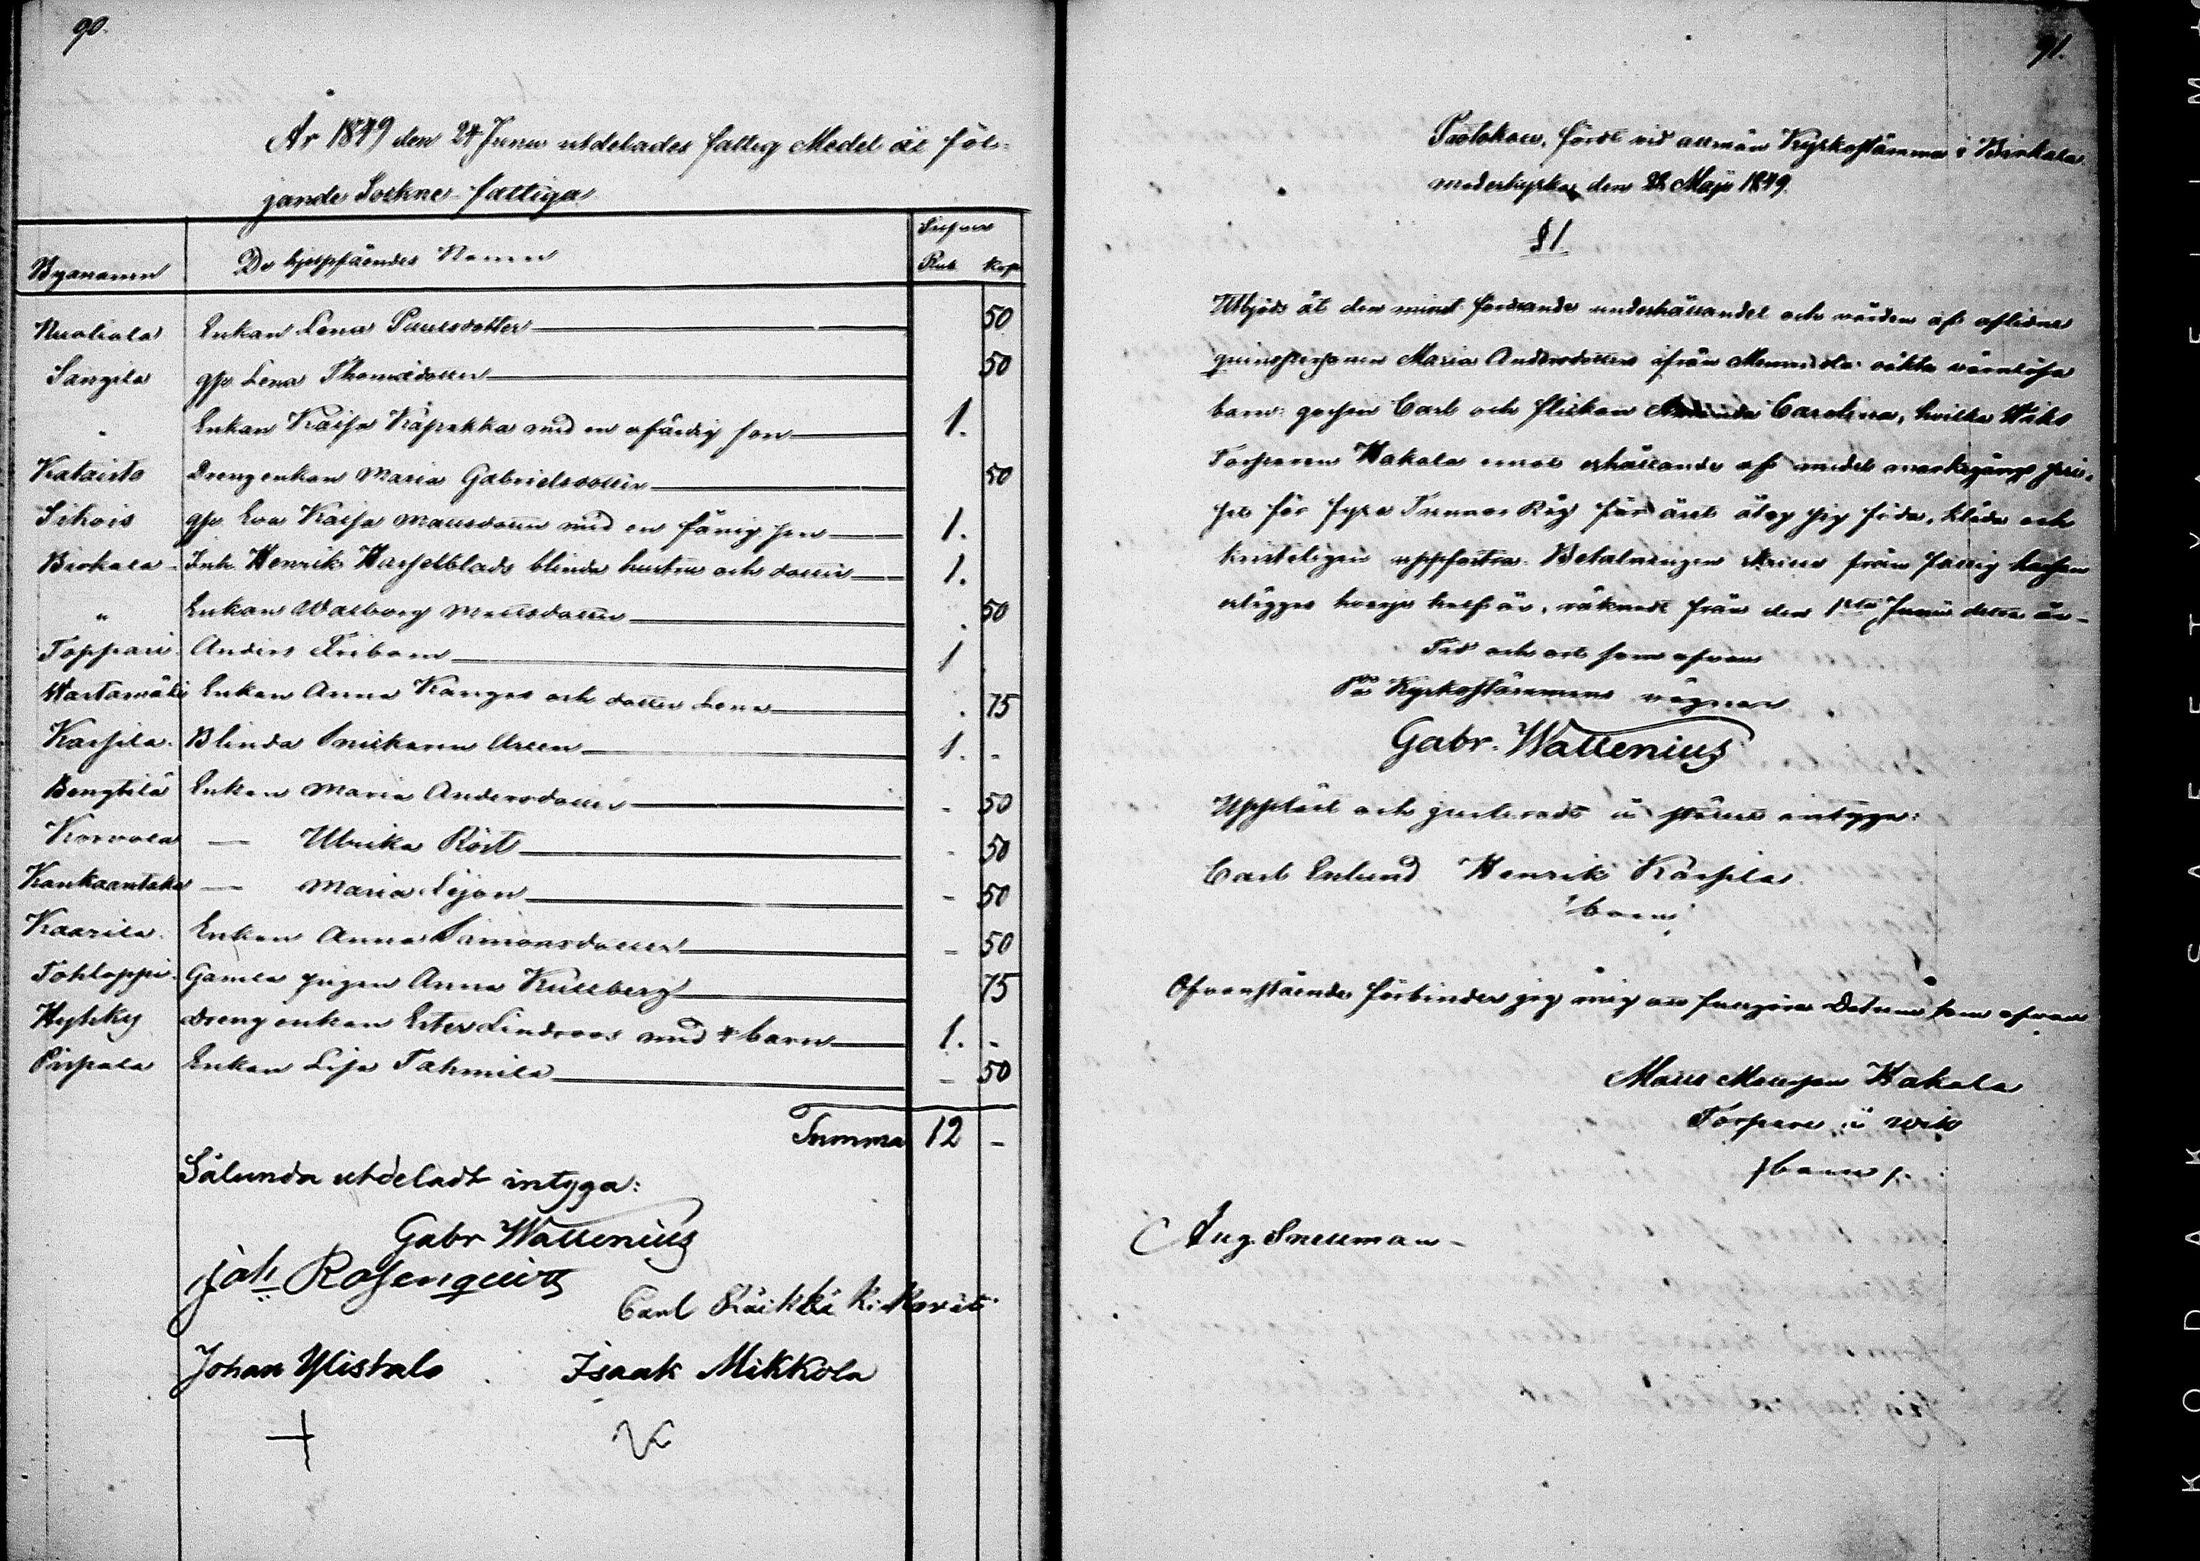 90.
År 1849 den 24 Junii utdelades fattig Medel åt föl-
jande Sockne-fattiga
Byanamn De hjelpfåendes Namn Silfver Rub. Kop.
Nuoliala Enkan Lena Paulsdotter 50
Sangila qp. Lena Thomædotter 50
" Enkan Kaisa Käprekka med en ofärdig son 1.
Kataisto Drengenkan Maria Gabrielsdotter 50
Sikois qp. Eva Kaisa Mattsdotter med en fånig son 1.
Birkala Inh. Henrik Hasselblads blinda hustru och dotter 1.
" Enkan Walborg Mattsdotter 50
Toppari Anders Fribom 1
Wartamäki Enkan Anna Kanges och dotter Lena 75
Karsila Blinda Snickaren 1. -
Bengtilä Enkan Maria Andersdotter - 50
Korvola — Ulrika Röst - 50
Kankaantaka — Maria Lejon - 50
Kaarila Enkan Anna Simonsdotter - 50
Tohloppi Gamla pigan Anna Kullberg 75
Hyhky Drengenkan Ester Lindroos med 4 barn 1. -
Pispala Enkan Lisa Tahmela - 50
Summa 12 -
Sålunda utdeladt intyga:
Gabr Wallenius
Joh. Rosenqvist
Carl Räikkä
Johan Ylistalo Isaak Mikkola
91.
Protokoll, fördt vid allmän Kyrkostämma i Birkala
moderkyrka den 28 Maji 1849.
§ 1
Utbjöds åt den minst fordrande underhållandet och vården af aflidna
qvinspersonen Maria Andersdotters ifrån oäkta värnlösa
barn: gossen Carl och flickan Carolina, hvilka Wiks
Torparen Hakala emot erhållande af medel markegångs pri-
set för fyra Tunnor Råg för året åtog sig föda, kläda och
kristeligen uppfostra. Betalningen från fattig kassan
erlägges hvarje half år, räknadt från den 1sta Junii detta år.
Tid och ort som ofvan
På Kyrkostämmans vägnar
Gabr. Wallenius
Uppläst och justeradt å stället intyga:
Carl Enlund Henrik Karsila
Ofvanstående förbinder jag mig att fullgöra Datum som ofvan
Matts Mattsson Hakala
Torpare å Wik
Aug. Snellman
KODAK SAFETY FILM